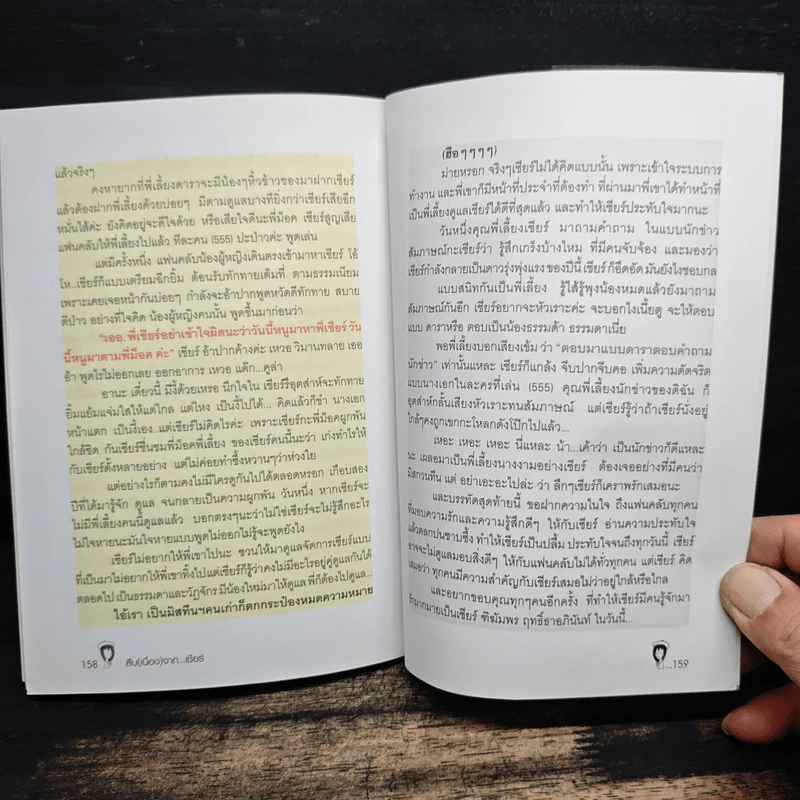 แล้วจริงๆ
คงหายากที่พี่เลี้ยงดาราจะมีน้องๆหิ้วข้าวของมาฝากเชียร์
แล้วต้องฝากพี่เลี้ยงด้วยบ่อยๆ มีตามดูแลบางทียิ่งกว่าเชียร์เสียอีก
หมั่นไส้ค่ะ ยังคิดอยู่จะดีใจด้วย หรือเสียใจดีนะพี่ม็อค เชียร์สูญเสีย
แฟนคลับให้พี่เลี้ยงไปแล้ว ทีละคน (555) ปะป่าวค่ะ พูดเล่น
แต่มีครั้งหนึ่ง แฟนคลับน้องผู้หญิงเดินตรงเข้ามาหาเชียร์ โอ้
โห..เชียร์ก็แบบเตรียมฉีกยิ้ม ต้อนรับทักทายเต็มที่ ตามธรรมเนียม
เพราะเคยเจอหน้ากันบ่อยๆ กำลังจะอ้าปากพูดหวัดดีทักทาย สบาย
ดีป่าว อย่างที่ใจคิด น้องผู้หญิงคนนั้น พูดขึ้นมาก่อนว่า
"เออ..พี่เชียร์อย่าเข้าใจผิดนะว่าวันนี้หนูมาหาพี่เชียร์ วัน
นี้หนูมาตามพี่ม็อค ค่ะ" เชียร์ อ้าปากค้างค่ะ เหวอ วิมานทลาย เออ
อ้า พูดไรไม่ออกเลย ออกอาการ เหวอ แด๊ก...คูล่า
อานะ เดี๋ยวนี้ มีงี้ด้วยเหรอ นึกในใจ เชียร์รึอุตส่าห์จะทักทาย
ยิ้มแย้มแจ่มใสให้แต่ไกล แต่ไหง เป็นงี้ไปได้... คิดแล้วก็ขำ นางเอก
หน้าแตก เป็นงี้เอง...แต่เชียร์ไม่คิดไรค่ะ เพราะเชียร์กะพี่ม็อคผูกพัน
ใกล้ชิด กันเชียร์ชื่นชมพี่ม็อคพี่เลี้ยง ของเชียร์คนนี้นะว่า เก่งทำไรให้
กับเชียร์ตั้งหลายอย่าง แต่ไม่ค่อยทำซึ้งหวานๆว่าห่วงใย
แต่อย่างไรก็ตามคงไม่มีใครดูกันไปได้ตลอดหรอก เกือบสอง
ปีที่ได้มารู้จัก ดูแล จนกลายเป็นความผูกพัน วันหนึ่ง หากเชียร์จะ
ไม่มีพี่เลี้ยงคนนี้ดูแลแล้ว บอกตรงๆนะว่าไม่ใช่เชียร์จะไม่รู้สึกอะไร
ไม่ใจหายนะมันใจหายแบบพูดไม่ออกไม่รู้จะพูดยังไง
เชียร์ไม่อยากให้พี่เขาไปนะ ชวนให้มาดูแลจัดการเชียร์แบบ
ที่เป็นมาไม่อยากให้พี่เขาทิ้งไปแต่เชียร์ก็รู้ว่าคงไม่มีอะไรอยู่คู่ดูแลกันได้
ตลอดไป เป็นธรรมดาและวัฏจักร มีน้องใหม่มาให้ดูแล พี่ก็ต้องไปดูแล...
ไอ้เรา เป็นมิสทีนฯคนเก่าก็ตกกระป๋องหมดความหมาย
158 สืบ(เนื่อง)จาก...เชียร์
(ฮือๆๆๆๆ)
ม่ายหรอก จริงๆเชียร์ไม่ได้คิดแบบนั้น เพราะเข้าใจระบบการ
ทำงาน และพี่เขาก็มีหน้าที่ประจำที่ต้องทำ ที่ผ่านมาพี่เขาได้ทำหน้าที่
เป็นพี่เลี้ยงดูแลเชียร์ได้ดีที่สุดแล้ว และทำให้เชียร์ประทับใจมากนะ
วันหนึ่งคุณพี่เลี้ยงเชียร์ มาถามคำถาม ในแบบนักข่าว
สัมภาษณ์กะเชียร์ว่า รู้สึกเกร็งบ้างไหม ที่มีคนจับจ้อง และมองว่า
เชียร์กำลังกลายเป็นดาวรุ่งพุ่งแรง ของปีนี้ เชียร์ ก็อึดอัด มันยังไงชอบกล
แบบสนิทกันเป็นพี่เลี้ยง รู้ไส้รู้พุงน้องหมดแล้วยังมาถาม
สัมภาษณ์กันอีก เชียร์อยากจะหัวเราะค่ะ จะบอกไงเนี้ยดู จะให้ตอบ
แบบ ดาราหรือ ตอบเป็นน้องธรรมด้า ธรรมดาเนี่ย
พอพี่เลี้ยงบอกเสียงเข้ม ว่า "ตอบมาแบบดาราตอบคำถาม
นักข่าว" เท่านั้นแหละ เชียร์ก็แกล้ง จีบปากจีบคอ เพิ่มความดัดจริต
แบบนางเอกในละครที่เล่น (555) คุณพี่เลี้ยงนักข่าวของดิฉัน ก็
อุตส่าห์กลั้นเสียงหัวเราะทนสัมภาษณ์ แต่เชียร์รู้ว่าถ้าเชียร์นั่งอยู่
ใกล้ๆคงถูกเขกกะโหลกดังโป๊กไปแล้ว...
เหอะ เหอะ เหอะ นี่แหละ น้า...เค้าว่า เป็นนักข่าวก็ดีแหละ
นะ เผลอมาเป็นพี่เลี้ยงนางงามอย่างเชียร์ ต้องเจออย่างที่มีคนว่า
มิสกวนทีน แต่ อย่าเอะอะไปล่ะ ว่า ลึกๆเชียร์ก็เคารพรักเสมอนะ
และบรรทัดสุดท้ายนี้ ขอฝากความในใจ ถึงแฟนคลับทุกคน
ที่มอบความรักและความรู้สึกดีๆ ให้กับเชียร์ อ่านความประทับใจ
แล้วตลกปนซาบซึ้ง ทำให้เชียร์เป็นปลื้ม ประทับใจจนถึงทุกวันนี้ เชียร์
อาจจะไม่ได้ดูแลมอบสิ่งดีๆ ให้กับแฟนคลับไม่ได้ทั่วทุกคน แต่เชียร์ คิด
เสมอว่า ทุกคนมีความสำคัญกับเชียร์เสมอไม่ว่าอยู่ใกล้หรือไกล
และอยากขอบคุณทุกๆคนอีกครั้ง ที่ทำให้เชียร์มีคนรู้จักมา
รักมากมายเป็นเชียร์ ฑิฆัมพร ฤทธิ์ธาอภินันท์ ในวันนี้...
...159